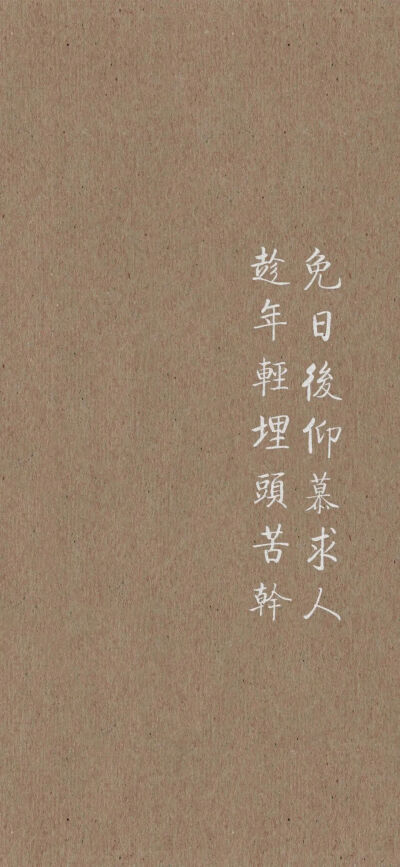 免日後仰慕求人
趁年輕埋頭苦幹